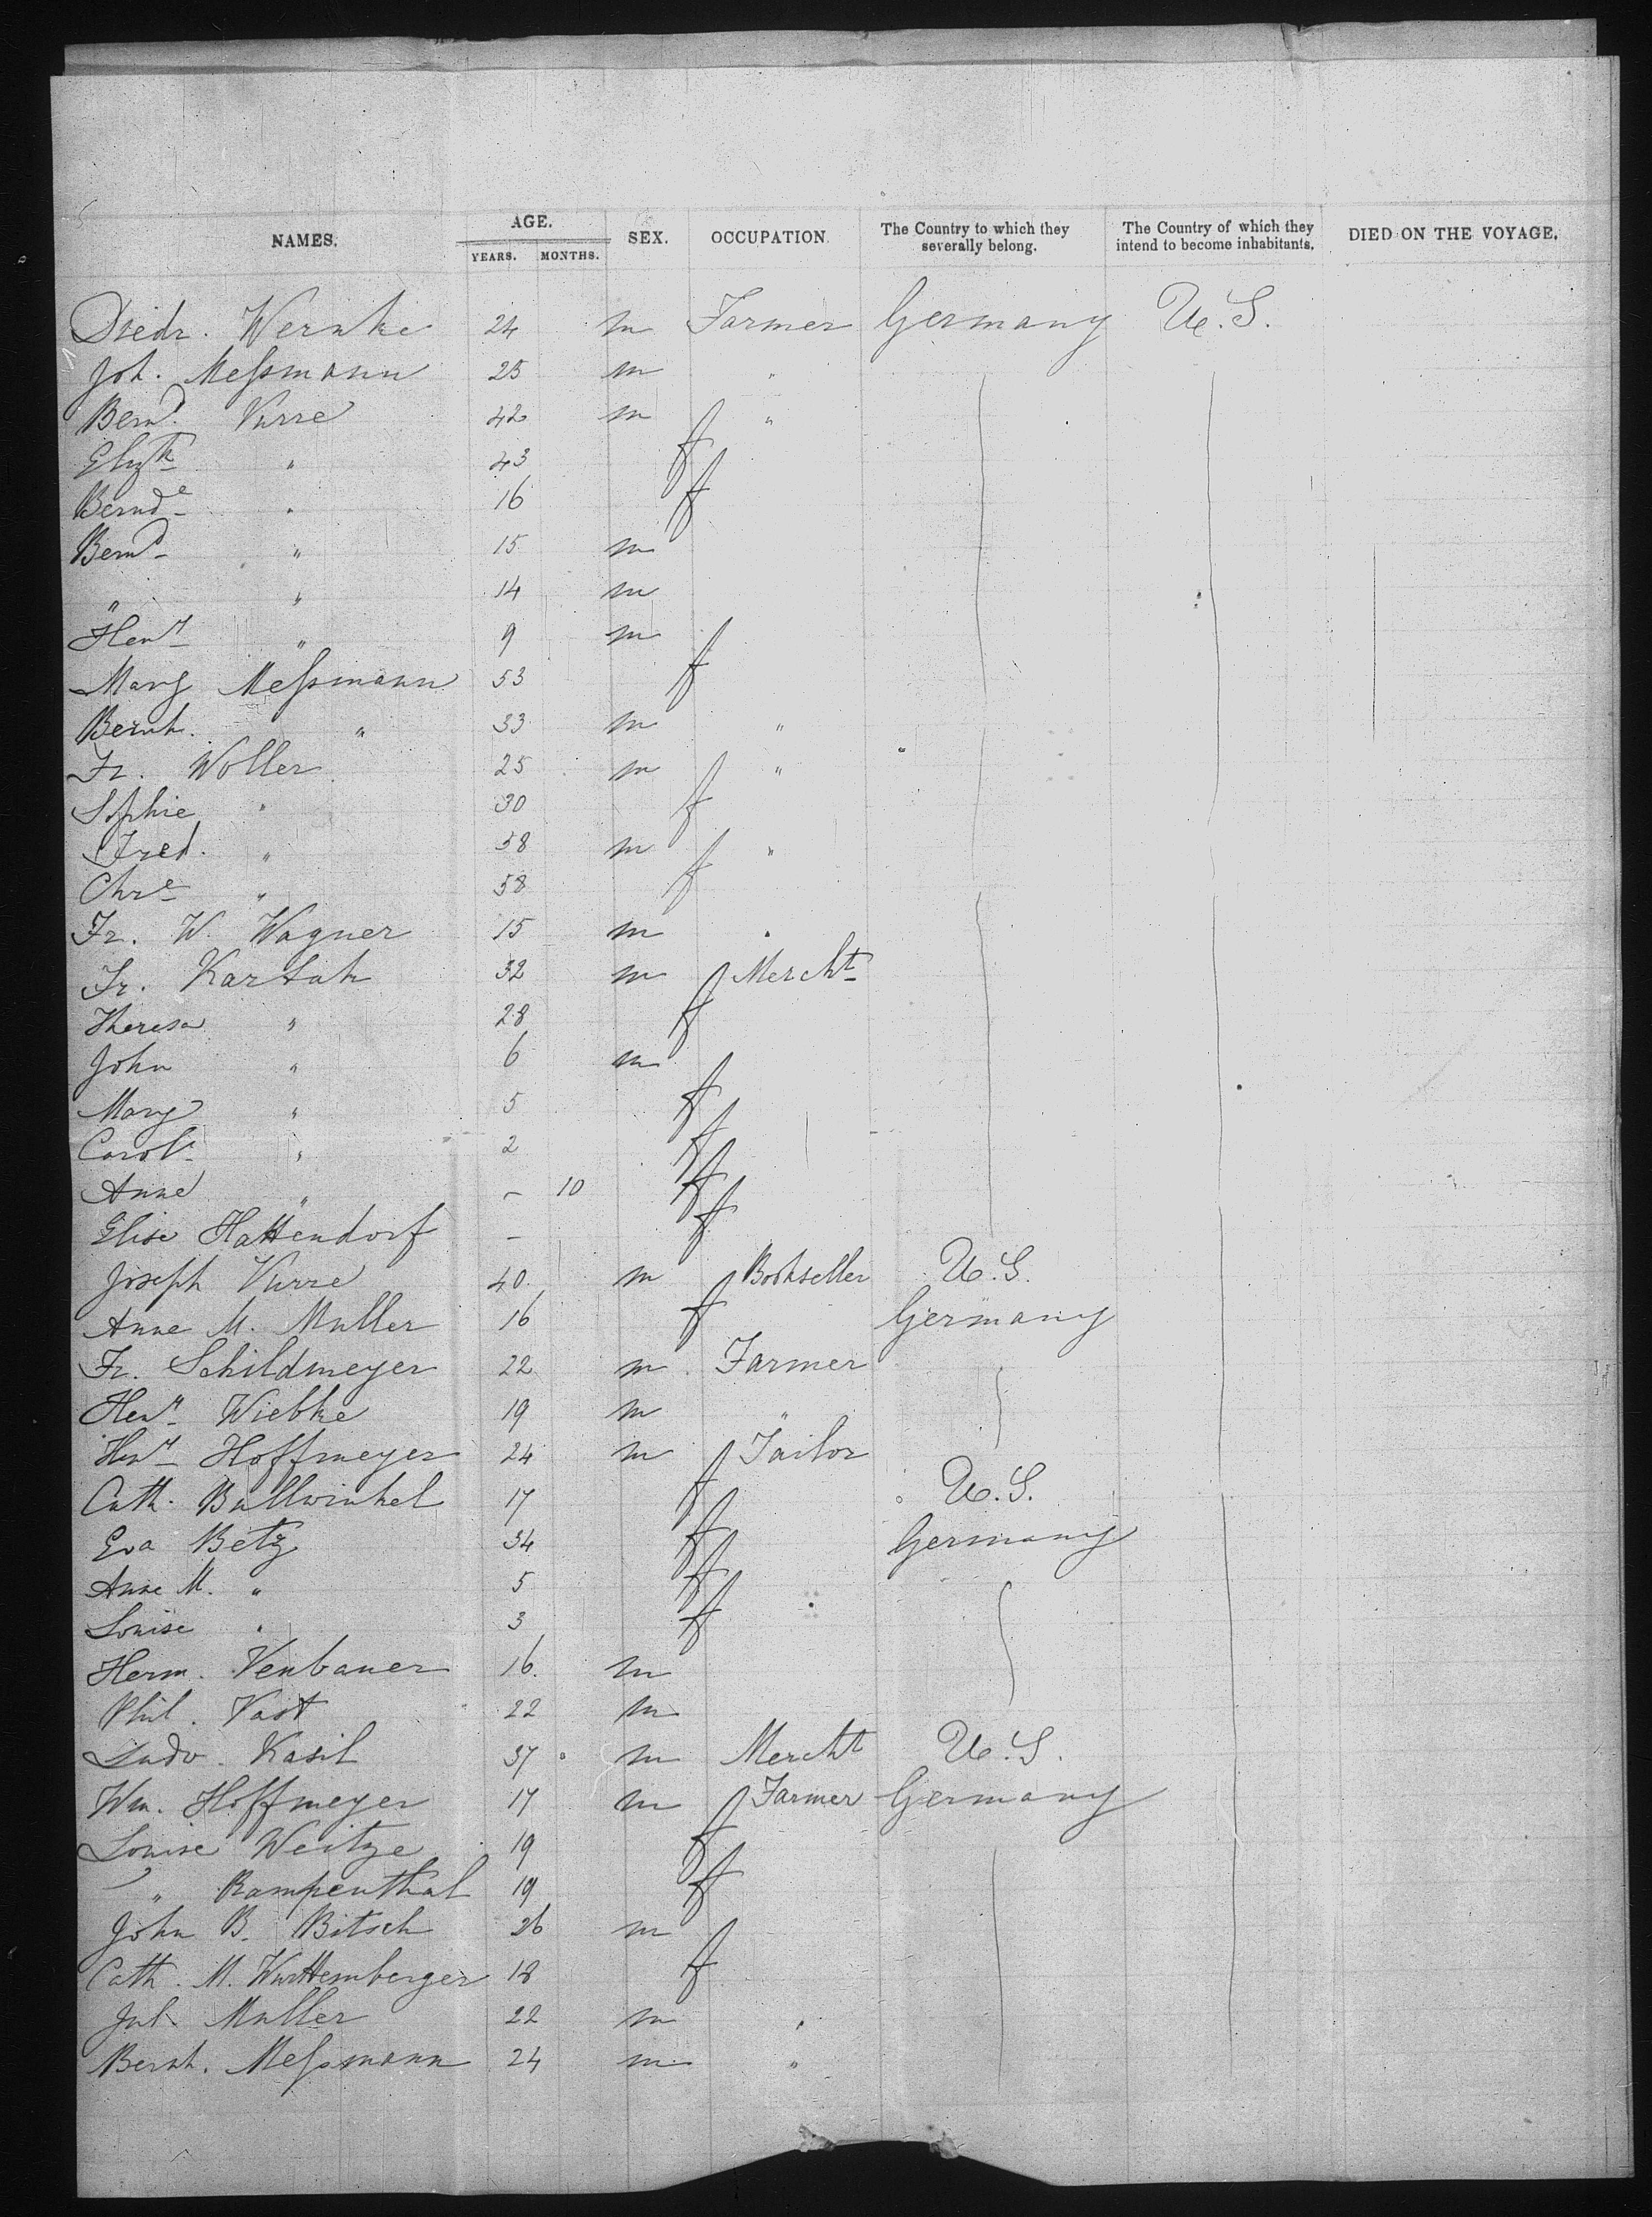 NAMES. AGE. YEARS. MONTHS. SEX. OCCUPATION. The Country to which they severally belong. The Country of which they intend to become inhabitants. DIED ON THE VOYAGE.
Diedr. Wernke 24 m Farmer Germany U.S.
Joh. Meſsmann 25 m "
Bernd. Kurre 42 m "
Elizth " 43 f
Bernde " 16 f
Bernd " 15 m
" " 14 m
Heny " 9 m
Mary Meſsmann 53 f
Bernh. " 33 m "
Fr. Woller 25 m "
Sophie " 30 f
Fred. " 58 m "
Chre " 58 f
Fr. W. Wagner 15 m "
Fr. Kartah 32 m Mercht
Theresa " 28 f
John " 6 m
Mary " 5 f
Carol. " 2 f
Anne " – 10 f
Elise Hattendorf – f
Joseph Kurre 40 m Bookseller U.S.
Anne M. Muller 16 f Germany
Fr. Schildmeyer 22 m Farmer
Heny Wiebke 19 m "
Heny Hoffmeyer 24 m Tailor
Cath. Ballwinkel 17 f U.S.
Eva Betz 34 f Germany
Anne M. " 5 f
Louise " 3 f
Herm. Venbauer 16 m
Phil. Vast 22 m
Ludv. Kasil 37 m Mercht U.S.
Wm. Hoffmeyer 17 m Farmer Germany
Louise Weitze 19 f
" Rampenthal 19 f
John B. Bitsch 26 m
Cath. M. Wurttemberger 18 f
Jul. Muller 22 m "
Bernh. Meſsmann 24 m "